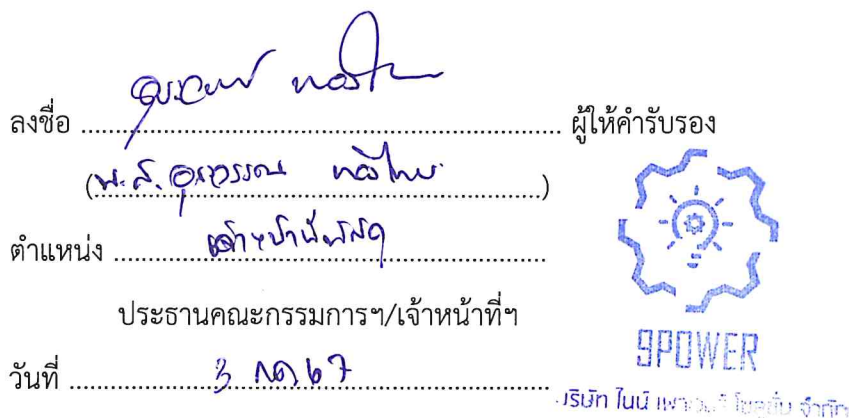 ลงชื่อ ................ ผู้ให้คำรับรอง
(น.ส. อุรวรรณ ทองไทย)
ตำแหน่ง เจ้าหน้าที่พัสดุ
ประธานคณะกรรมการฯ/เจ้าหน้าที่ฯ
วันที่ 3 กค 67
9POWER
บริษัท ไนน์ เพาเวอร์ โซลูชั่น จำกัด